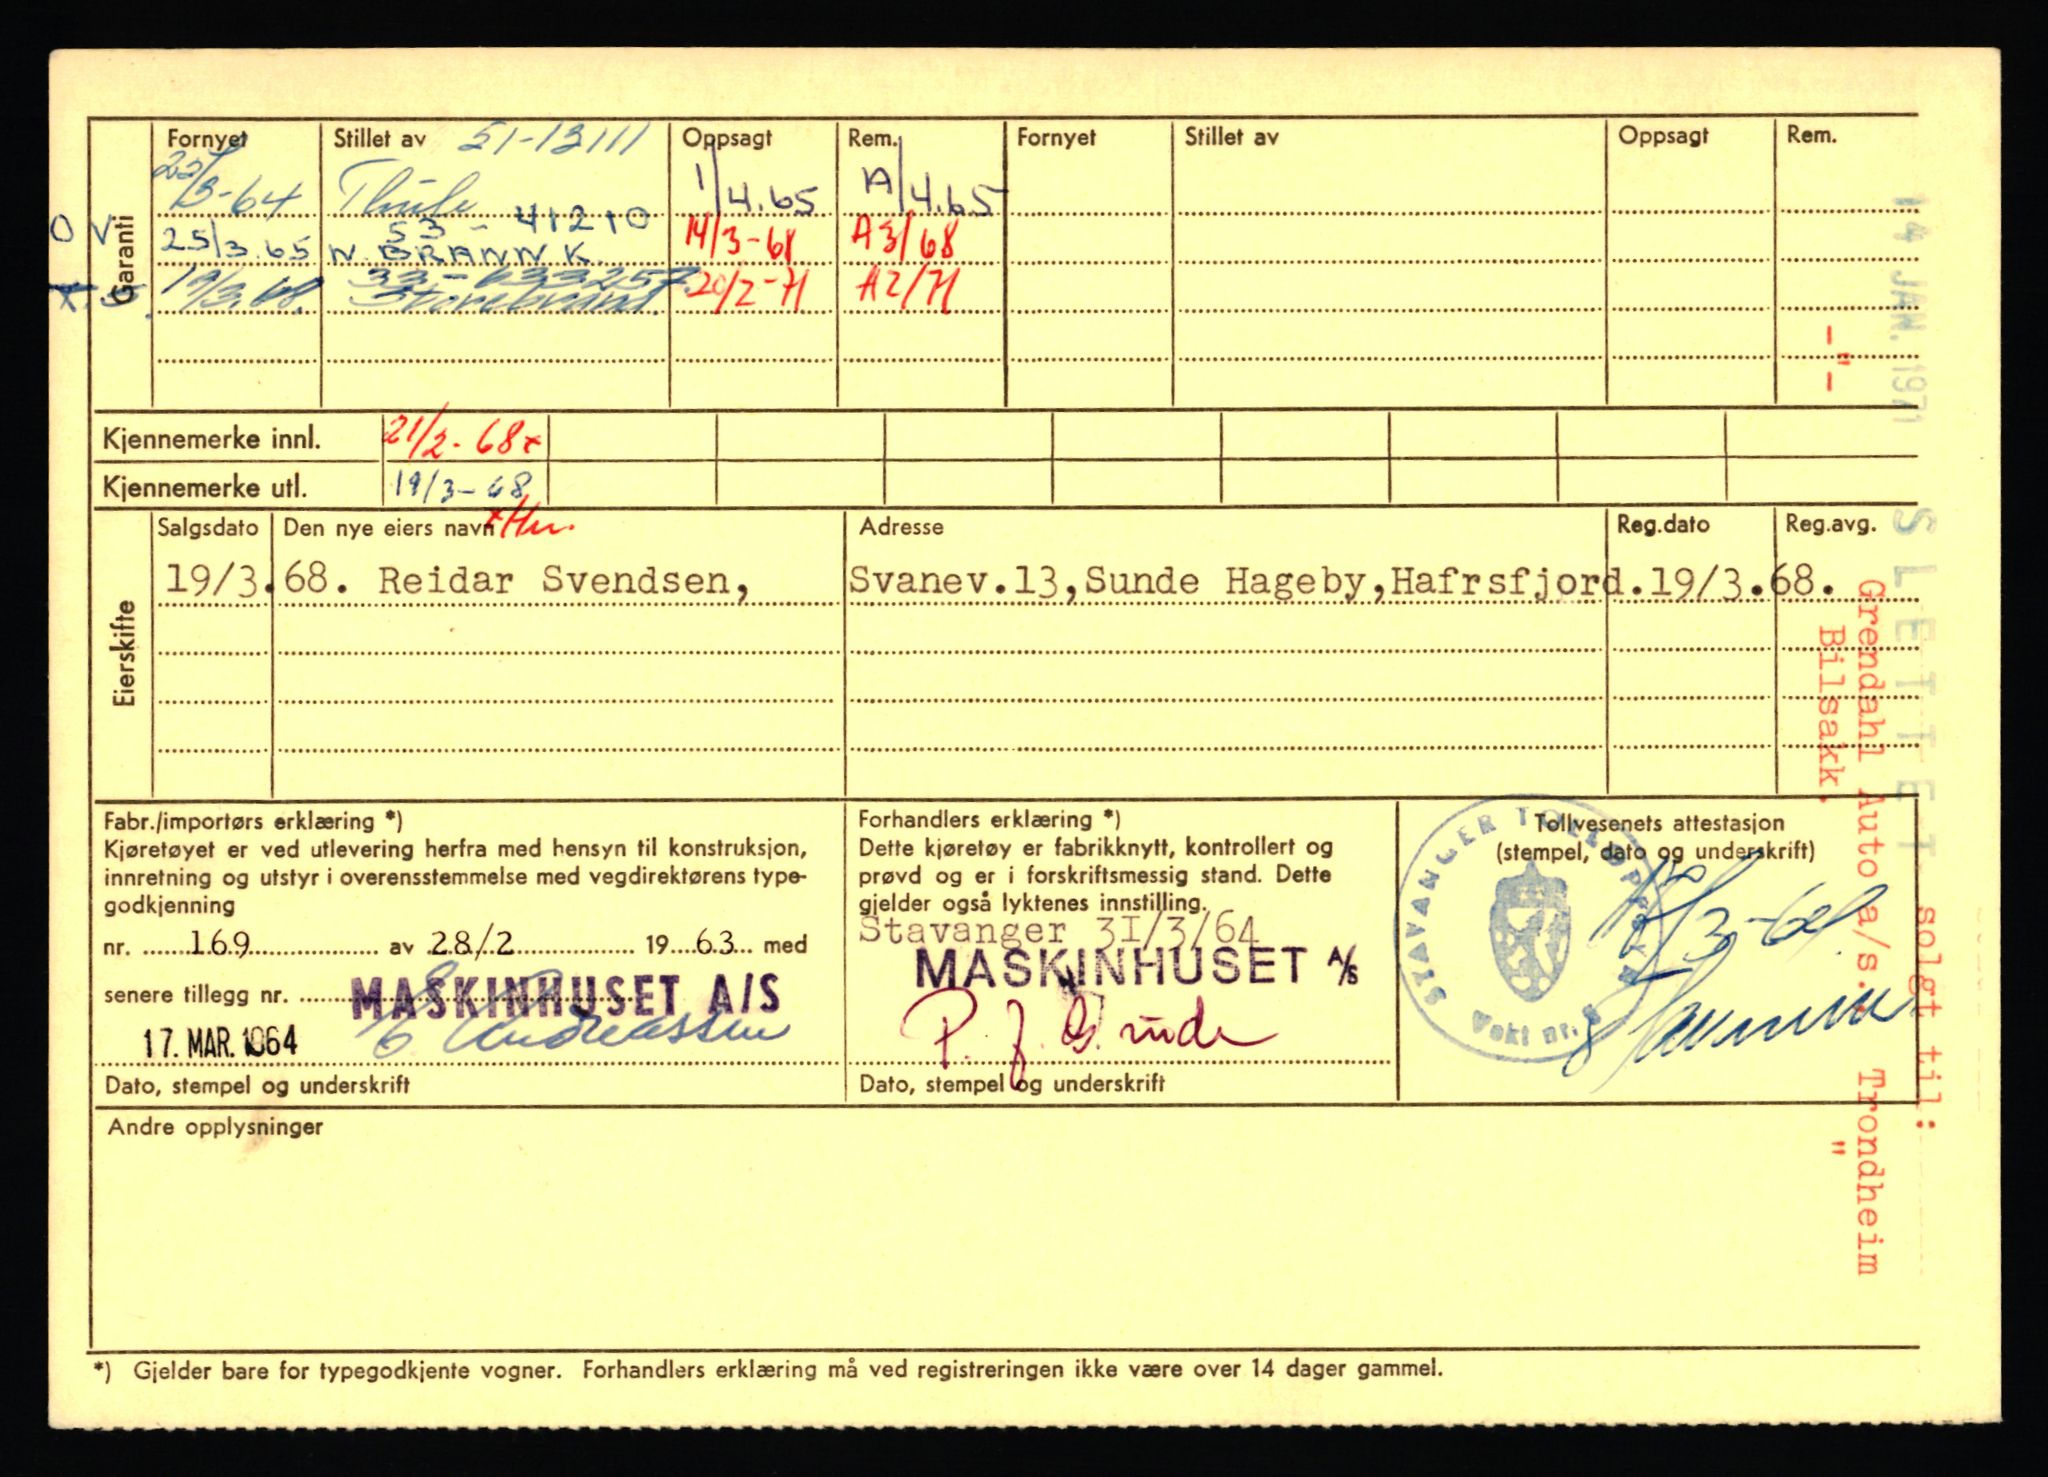 Fornyet Stillet av 51-13111 Oppsagt Rem. Fornyet Stillet av Oppsagt Rem.
Garanti
/3-64 Thule 1/4.65 A/4.65
O V 25/3.65 53-41210 14/3-68 A3/68
N. BRANN K.
19/3.68. 33-633257. 20/2-71 A2/71
Storebrand.
Kjennemerke innl. 21/2-68x
Kjennemerke utl. 19/3-68
Eierskifte
Salgsdato Den nye eiers navn Adresse Reg.dato Reg.avg.
19/3.68. Reidar Svendsen, Svanev.13,Sunde Hageby,Hafrsfjord.19/3.68.
Fabr./importørs erklæring *)
Kjøretøyet er ved utlevering herfra med hensyn til konstruksjon,
innretning og utstyr i overensstemmelse med vegdirektørens type-
godkjenning
nr. 169 av 28/2 19 63 med
senere tillegg nr. MASKINHUSET A/S
17. MAR. 1964 E. Andreassen
Dato, stempel og underskrift
Forhandlers erklæring *)
Dette kjøretøy er fabrikknytt, kontrollert og
prøvd og er i forskriftsmessig stand. Dette
gjelder også lyktenes innstilling.
Stavanger 3I/3/64
MASKINHUSET A/S
Dato, stempel og underskrift
Tollvesenets attestasjon
(stempel, dato og underskrift)
STAVANGER TOLLOPPSYN
Vakt nr. 8
Andre opplysninger
*) Gjelder bare for typegodkjente vogner. Forhandlers erklæring må ved registreringen ikke være over 14 dager gammel.
14 JAN. 1971 SLETTET solgt til:
Grendahl Auto a/s. Trondheim
-"- Bilsakk. "